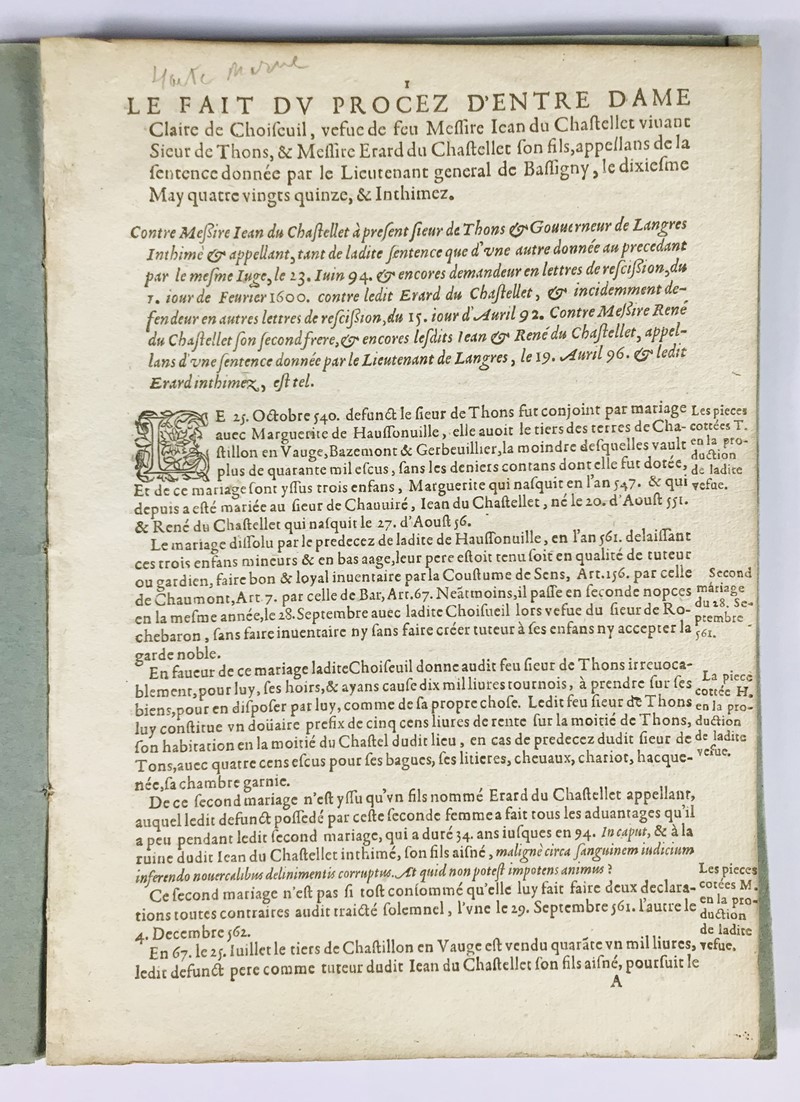 Haute Marne
1
LE FAIT DV PROCEZ D'ENTRE DAME
Claire de Choiſeuil, vefue de feu Meſſire Iean du Chaſtellet viuant
Sieur de Thons, & Meſſire Erard du Chaſtellet ſon fils, appellans de la
ſentence donnée par le Lieutenant general de Baſſigny, le dixieſme
May quatre vingts quinze, & Inthimez.
Contre Meſſire Iean du Chaſtellet à preſent ſieur de Thons & Gouuerneur de Langres
Inthimé & appellant, tant de ladite ſentence que d'vne autre donnée au precedant
par le meſme Iuge, le 23. Iuin 94. & encores demandeur en lettres de reſciſion, du
1. iour de Feurier 1600. contre ledit Erard du Chaſtellet, & incidemment de-
fendeur en autres lettres de reſciſſion, du 15. iour d'Auril 92. Contre Meſſire René
du Chaſtellet ſon ſecond frere, & encores leſdits Iean & René du Chaſtellet, appel-
lans d'vne ſentence donnée par le Lieutenant de Langres, le 19. Auril 96. & ledit
Erard inthimez, eſt tel.
LE 25. Octobre 540. defunct le ſieur de Thons fut conjoint par mariage
auec Marguerite de Hauſſonuille, elle auoit le tiers des terres de Cha-
ſtillon en Vauge, Bazemont & Gerbeuillier, la moindre deſquelles vault
plus de quarante mil eſcus, ſans les deniers contans dont elle fut dotée,
Les pieces
cottées T.
en la pro-
duction
de ladite
vefue.
Et de ce mariage ſont yſſus trois enfans, Marguerite qui naſquit en l'an 547. & qui
depuis a eſté mariée au ſieur de Chauuiré, Iean du Chaſtellet, né le 20. d'Aouſt 551.
& René du Chaſtellet qui naſquit le 27. d'Aouſt 56.
Le mariage diſſolu par le predecez de ladite de Hauſſonuille, en l'an 561. delaiſſant
ces trois enfans mineurs & en bas aage, leur pere eſtoit tenu ſoit en qualité de tuteur
ou gardien, faire bon & loyal inuentaire par la Couſtume de Sens, Art. 156. par celle
de Chaumont, Art 7. par celle de Bar, Art. 67. Neātmoins, il paſſe en ſeconde nopces
en la meſme année, le 28. Septembre auec ladite Choiſueil lors vefue du ſieur de Ro-
chebaron, ſans faire inuentaire ny ſans faire créer tuteur à ſes enfans ny accepter la
garde noble.
Second
mariage
du 28. Se-
ptembre
561.
En faueur de ce mariage ladite Choiſeuil donne audit feu ſieur de Thons irreuoca-
blement, pour luy, ſes hoirs, & ayans cauſe dix mil liures tournois, à prendre ſur ſes
biens, pour en diſpoſer par luy, comme de ſa propre choſe. Ledit feu ſieur de Thons
luy conſtitue vn doüaire prefix de cinq cens liures de rente ſur la moitié de Thons,
ſon habitation en la moitié du Chaſtel dudit lieu, en cas de predecez dudit ſieur de
Tons, auec quatre cens eſcus pour ſes bagues, ſes litieres, cheuaux, chariot, hacque-
née, ſa chambre garnie.
La piece
cottée H.
en la pro-
duction
de ladite
vefue.
De ce ſecond mariage n'eſt yſſu qu'vn fils nommé Erard du Chaſtellet appellant,
auquel ledit defunct poſſedé par ceſte ſeconde femme a fait tous les aduantages qu'il
a peu pendant ledit ſecond mariage, qui a duré 34. ans iuſques en 94. In caput, & à la
ruine dudit Iean du Chaſtellet inthimé, ſon fils aiſné, malignè circa ſanguinem iudicium
inferendo nouercalibus delinimentis corruptus. At quid non poteſt impotens animus?
Ce ſecond mariage n'eſt pas ſi toſt conſommé qu'elle luy fait faire deux declara-
tions toutes contraires audit traicté ſolemnel, l'vne le 29. Septembre 561. l'autre le
4. Decembre 562.
Les pieces
cotées M.
en la pro-
duction
de ladite
vefue.
En 67. le 25. Iuillet le tiers de Chaſtillon en Vauge eſt vendu quarāte vn mil liures,
ledit defunct pere comme tuteur dudit Iean du Chaſtellet ſon fils aiſné, pourſuit le
A